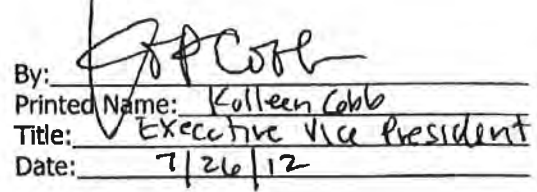 By: Cobb
Printed Name: Kolleen Cobb
Title: Executive Vice President
Date: 7/26/12